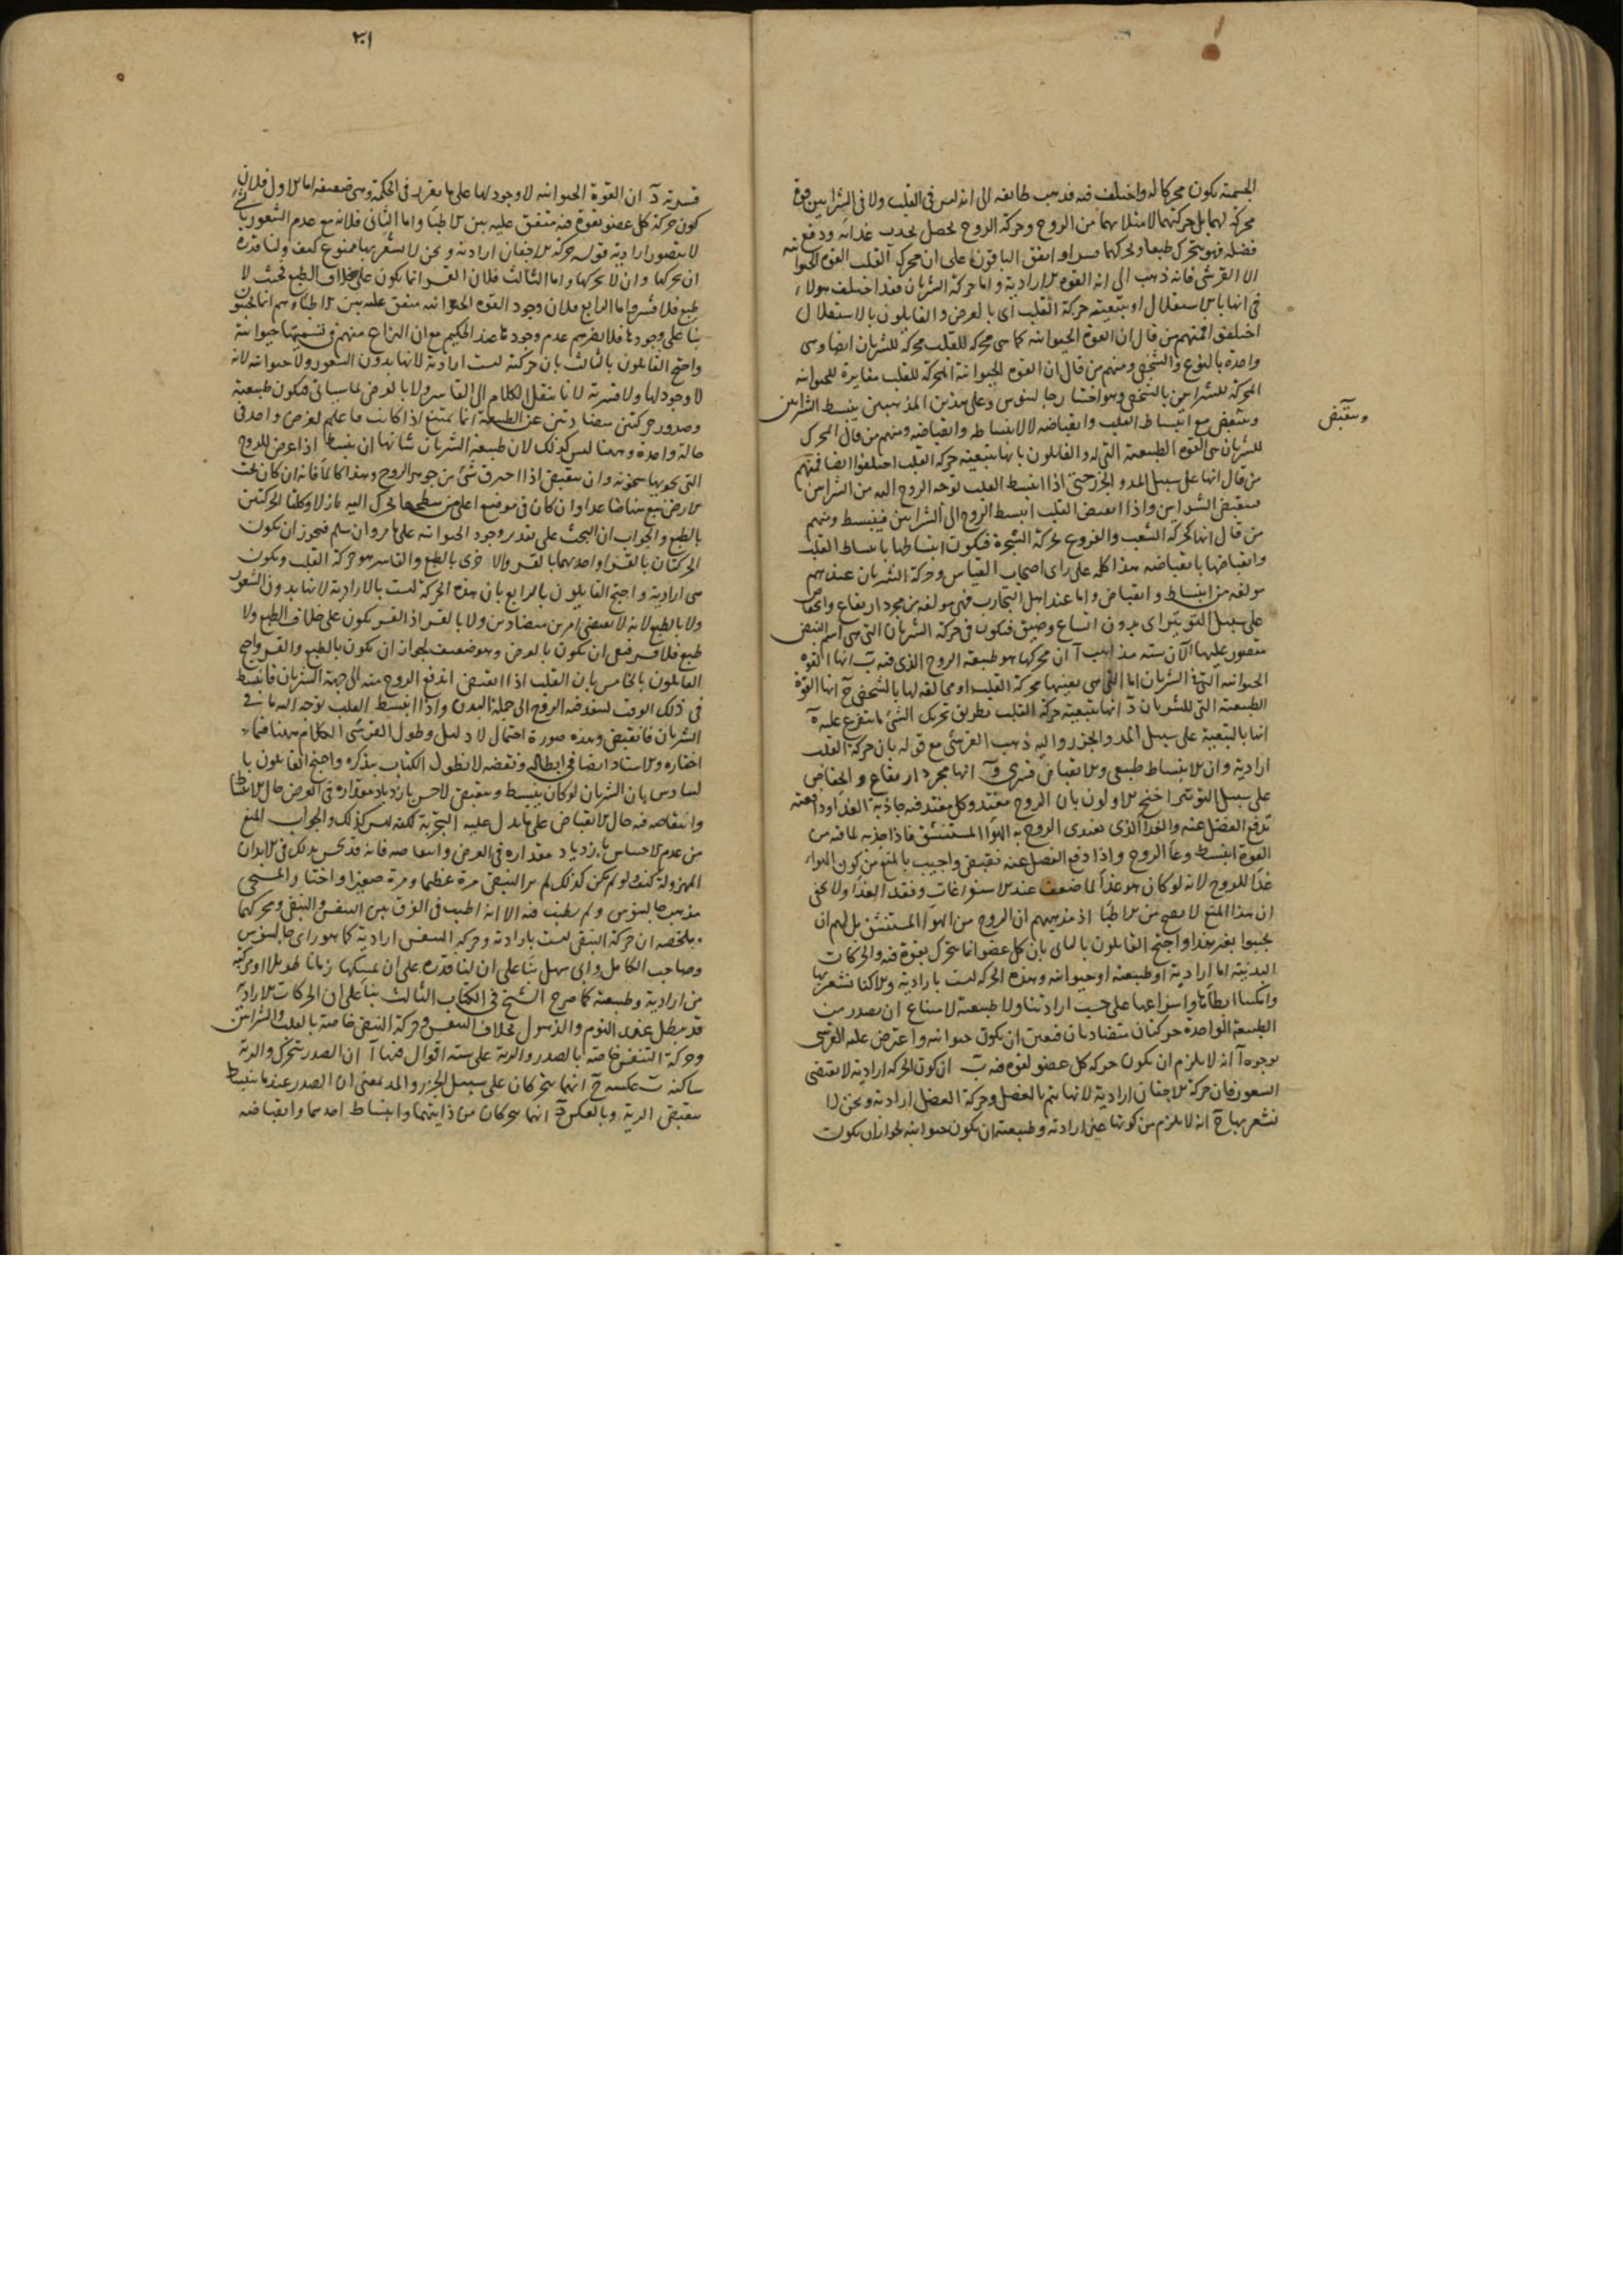 الجسمية يكون محركا له واختلف فيه فذهب طائفة الى انه ليس فى القلب ولا فى الشرايين قوة
محركة لهما بل حركتهما لامتلائهما من الروح وحركة الروح تحصل بجذب غذائه ودفع
فضله فهو يتحرك طبعا ويحركهما قسرا واتفق الباقون على ان محرك القلب القوة الحيوانية
الا القرشى فانه ذهب الى انه القوة الارادية واما حركة الشريان فقد اختلف هولاء
فى انها بالاستقلال او بتبعية حركة القلب اى بالعرض والقايلون بالاستقلال
اختلفوا فمنهم من قال ان القوة الحيوانية كما هى محركة للقلب محركة للشريان ايضا وهى
واحدة بالنوع والشخص ومنهم من قال ان القوة الحيوانية المحركة للقلب مغايرة للحيوانية
المحركة للشرايين بالشخص وهو اختيار جالينوس وعلى هذين المذهبين ينبسط الشرايين
وينقبض
وينقبض مع انبساط القلب وانقباضه لا لانبساطه وانقباضه ومنهم من قال المحرك
للشريان هى القوة الطبيعية التى له والقايلون بانها بتبعية حركة القلب اختلفوا ايضا فمنهم
من قال انها على سبيل المد والجزر حتى اذا انبسط القلب توجه الروح اليه من الشرايين
فينقبض الشرايين واذا انقبض القلب انبسط الروح الى الشرايين فينبسط ومنهم
من قال انها كحركة الشعب والفروع بحركة الشجرة فيكون انبساطها بانبساط القلب
وانقباضها بانقباضه هذا كله على راى اصحاب القياس وحركة الشريان عندهم
مولفة من انبساط وانقباض واما عند اهل التجارب فهى مولفة من مجرد ارتفاع وانخفاض
على سبيل التوتير اى بدون اتساع وضيق فيكون فى حركة الشريان التى هى اسم النبض
مقصور عليها الآن ستة مذاهب آ ان محركها هو طبيعة الروح الذى فيه ب انها القوة
الحيوانية التى فى الشريان اما التى هى بعينها محركة القلب او مخالفة لها بالشخص ج انها القوة
الطبيعية التى للشريان د انها بتبعية حركة القلب بطريق تحريك الشئ ما يتفرع عليه ه
انها بالتبعية على سبيل المد والجزر واليه ذهب القرشى مع قوله بان حركة القلب
ارادية وان الانبساط طبيعى والانقباض قسرى و انها مجرد ارتفاع وانخفاض
على سبيل التوتير احتج الاولون بان الروح مغتذ وكل مغتذ فيه جاذبة الغذا ودافعة
تدفع الفضل عنه والغذا الذى يغتذى الروح به الهوا المستنشق فاذا جذبه لما فيه من
القوة انبسط وعا الروح واذا دفع الفضل عنه فينقبض واجيب بالمنع من كون الهواء
غذا للروح لانه لو كان هو غذا لما ضعف عند الاستفراغات وفقد الغذا ولا يخفى
ان هذا المنع لا يصح من الاطبا اذ مذهبهم ان الروح من الهوا المستنشق بل لهم ان
يجيبوا بغير هذا واحتج القايلون بالثانى بان كل عضو انما يتحرك بقوة فيه والحركات
البدنية اما ارادية او طبيعية او حيوانية وهذه الحركة ليست بارادية والا كنا نشعر بها
وامكننا ابطاها واسراعها على حسب ارادتنا ولا طبيعية لامتناع ان يصدر من
الطبيعة الواحدة حركتان متضادتان فتعين ان يكون حيوانية واعترض عليه القرشى
بوجوه آ انه لا يلزم ان يكون حركة كل عضو لقوة فيه ب ان كون الحركة ارادية لا يقتضى
الشعور فان حركة الاجفان ارادية لانها يتم بالعضل وحركة العضل ارادية ونحن لا
نشعر بها ج انه لا يلزم من كونها غير ارادية وطبيعية ان يكون حيوانية لجواز ان يكون
٢٠١
قسرية د ان القوة الحيوانية لا وجود لها على ما تقرر فى الحكمة وهى ضعيفة اما الاول فلان
كون حركة كل عضو بقوة فيه متفق عليه بين الاطبا واما الثانى فلانه مع عدم الشعور بالشئ
لا يتصور ارادية قوله حركة الاجفان ارادية ونحن لا نشعر بها ممنوع كيف ولنا قدرة
ان نحركها وان لا نحركها واما الثالث فلان القسر انما يكون على خلاف الطبع فحيث لا
طبع فلا قسر واما الرابع فلان وجود القوة الحيوانية متفق عليه بين الاطباء وهم انما يحتجون
بنا على وجودها فلا يضرهم عدم وجودها عند الحكيم مع ان النزاع منهم فى تسميتها حيوانية
واحتج القايلون بالثالث بان حركته ليست ارادية لانها بدون الشعور ولا حيوانية لانه
لا وجود لها ولا قسرية لانا ننقل الكلام الى القاسر ولا بالعرض لما سياتى فيكون طبيعية
وصدور حركتين متضادتين عن الطبيعة انما يمتنع اذا كانت فاعلهما لغرض واحد فى
حالة واحدة وههنا ليس كذلك لان طبيعة الشريان شانها ان ينبسط اذا عرض للروح
التى يحويها سخونة وان ينقبض اذا احترق شئ من جوهر الروح وهذا كالما فانه ان كان تحت
الارض نبع متصاعدا وان كان فى موضع اعلى من سطحها تحرك اليه نازلا وكلتا الحركتين
بالطبع والجواب ان البحث على تقدير وجود الحيوانية على ما مر وان سلم فيجوز ان يكون
الحركتان بالقسر او احديهما بالقسر والاخرى بالطبع والقاسر هو حركة القلب ويكون
هى ارادية واحتج القايلون بالرابع بان هذه الحركة ليست بالارادية لانها بدون الشعور
ولا بالطبع لانه لا يقتضى امرين متضادين ولا بالقسر اذ القسر يكون على خلاف الطبع ولا
طبع فلا قسر فبقى ان يكون بالعرض وهو ضعيف لجواز ان يكون بالطبع والقسر واحتج
القايلون بالخامس بان القلب اذا انقبض اندفع الروح منه الى جهة الشريان فانبسط
فى ذلك الوقت لينفد فيه الروح الى جملة البدن واذا انبسط القلب توجه اليه ما فى
الشريان فانقبض وهذه صورة احتمال لا دليل وطول القرشى الكلام ههنا فيما
اختاره والاستاد ايضا فى ابطاله ونقضه لا نطول الكتاب بذكره واحتج القايلون با
لسادس بان الشريان لو كان ينبسط وينقبض لاحس بازدياد مقداره فى العرض حال الانبساط
وانتقاصه فيه حال الانقباض على ما يدل عليه التجربة لكنه ليس كذلك والجواب المنع
من عدم الاحساس بازدياد مقداره فى العرض وانتقاصه فانه قد يحس بذلك فى الابدان
المهزولة كيف ولو لم يكن كذلك لم ير النبض مرة عظيما ومرة صغيرا واختار المسيحى
مذهب جالينوس ولم يطنب فيه الا انه اطنب فى الفرق بين التنفس والنبض ومحركهما
وملخصه ان حركة النبض ليست بارادية وحركة التنفس ارادية كما هو راى جالينوس
وصاحب الكامل وابى سهل بنا على ان لنا قدرة على ان نمسكها زمانا طويلا او مركبة
من ارادية وطبيعية كما صرح الشيخ فى الكتاب الثالث بنا على ان الحركات الارادية
قد تبطل عند النوم والذهول بخلاف التنفس وحركة النبض خاصة بالقلب والشرايين
وحركة التنفس خاصة بالصدر والرية على ستة اقوال فيها آ ان الصدر يتحرك والرية
ساكنة ب عكسه ج انهما يتحركان على سبيل الجزر والمد بمعنى ان الصدر عند ما ينبسط
ينقبض الرية وبالعكس د انهما يتحركان من ذاتيهما وانبساط احدهما وانقباضه